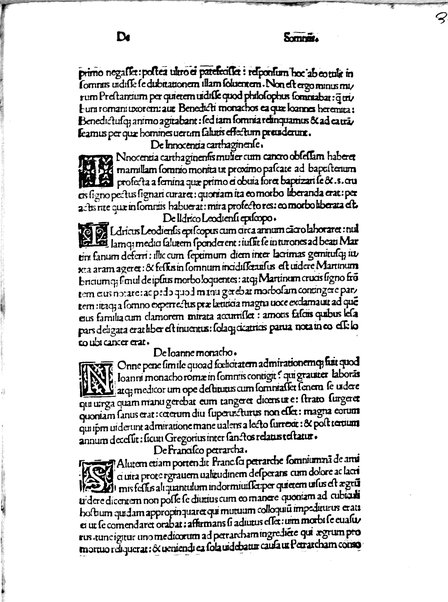 De Somniis.
primo negasset: postea ultro ei patefecisset: responsum hoc ab eo tulit in
somnis uidisse se dubitationem illam soluentem. Non est ergo minus mi
rum Prestantium per quietem uidisse quod philosophus somniabat: q̃ tri
buni romani uxorem: aut Benedicti monachos ea quæ Ioannes heremita:
Benedictusq; animo agitabant: sed iam somnia relinquamus & ad ea trā
seamus per quæ homines ueram salutis effectum
De Innocentia carthaginense.
INnocentia carthaginensis mulier cum cancro obsessam haberet
mamillam somnio monita ut proximo pascate ad bapesterium
profecta a femina quæ primo ei obuia foret baptizari se & s. cru
cis signo pectus signari curaret: quoniam ita eo morbo liberanda erat: per
actis rite quæ in somnis habuerat: mira profecto res: eo morbo liberata est.
De Ildrico Leodiensi episcopo.
ILdricus Leodiensis episcopus cum circa annum cãcro laboraret: nul
lamq; medici salutem sponderent: iussit se in turones ad beati Mar
tini fanum deferri: illic cum septimum diem inter lacrimas gemitusq; iu
xta aram ageret: & fessus in somnum incidisset uisus est uidere Martinum
brictiumq; simul de ipsius morbo loquentes: atq; Martinum crucis signo frō
tem eius notare: ac pedo quod manu gerebat morbosam contingere par
tem: itaq; a somno experrectus præ lætitia magna uoce exclamauit ad quē
eius familia cum clamorem mirata accurrisset: amotis fasciis quibus lesa
pars deligata erat liber est inuentus: solaq; cicatricis parua nota in eo esse lo
co ubi cancer erat.
De Ioanne monacho.
NOnne pene simile quoad foelicitatem admirationemq; fuit quod
Ioanni monacho romæ in somnis contigit qui grauiter laborās
atq; medicorum ope destitutus cum somniasset senem se uidere
qui uirga quam manu gerebat eum tangeret dicens ure: strato surgeret
quoniam sanus erat: cæterum diu superuicturus non esset: magna eorum
qui ipsum uiderunt admiratione mane ualens a lecto surrexit: & post tertium
annum decessit: sicuti Gregorius inter sanctos relatus testatur.
De Francisco petrarcha.
SAlutem etiam portendit Francisci petrarche somnium nã de ami
ci uita prope rograuem ualitudinem desperans cum dolore ac lacri
mis fessus aliquantulum indormiuisset per quietem uisus est ægrũ
uidere dicentem non posse se diutius cum eo manere quoniam ad cubiculi
hostium quidam appropinquaret qui mutuam colloquium impediturus erat:
ei ut se comendaret orabat: affirmans si adiutus esset: um morbi se euasu
rus tunc igitur uno medicorum ad petrarcham ingrediēte qui ægrum pro
mortuo reliquerat: & ueniendi ea sola uidebatur causa ut Petrarcham conso